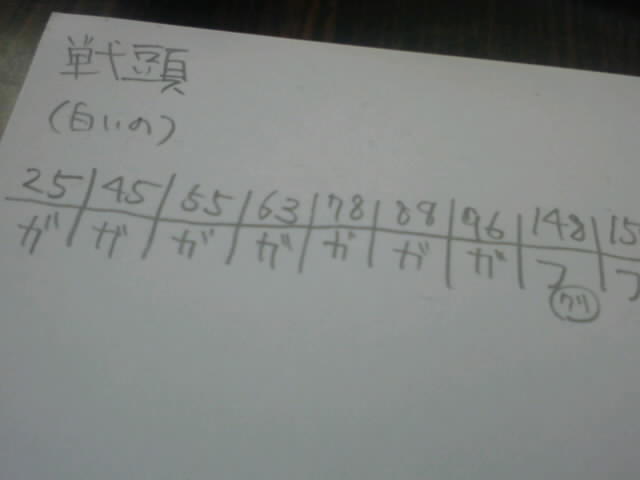 戦頭
(白いの)
25 45 55 63 78 88 96 148 15
ガ ガ ガ ガ ガ ガ ガ フ フ
クリ